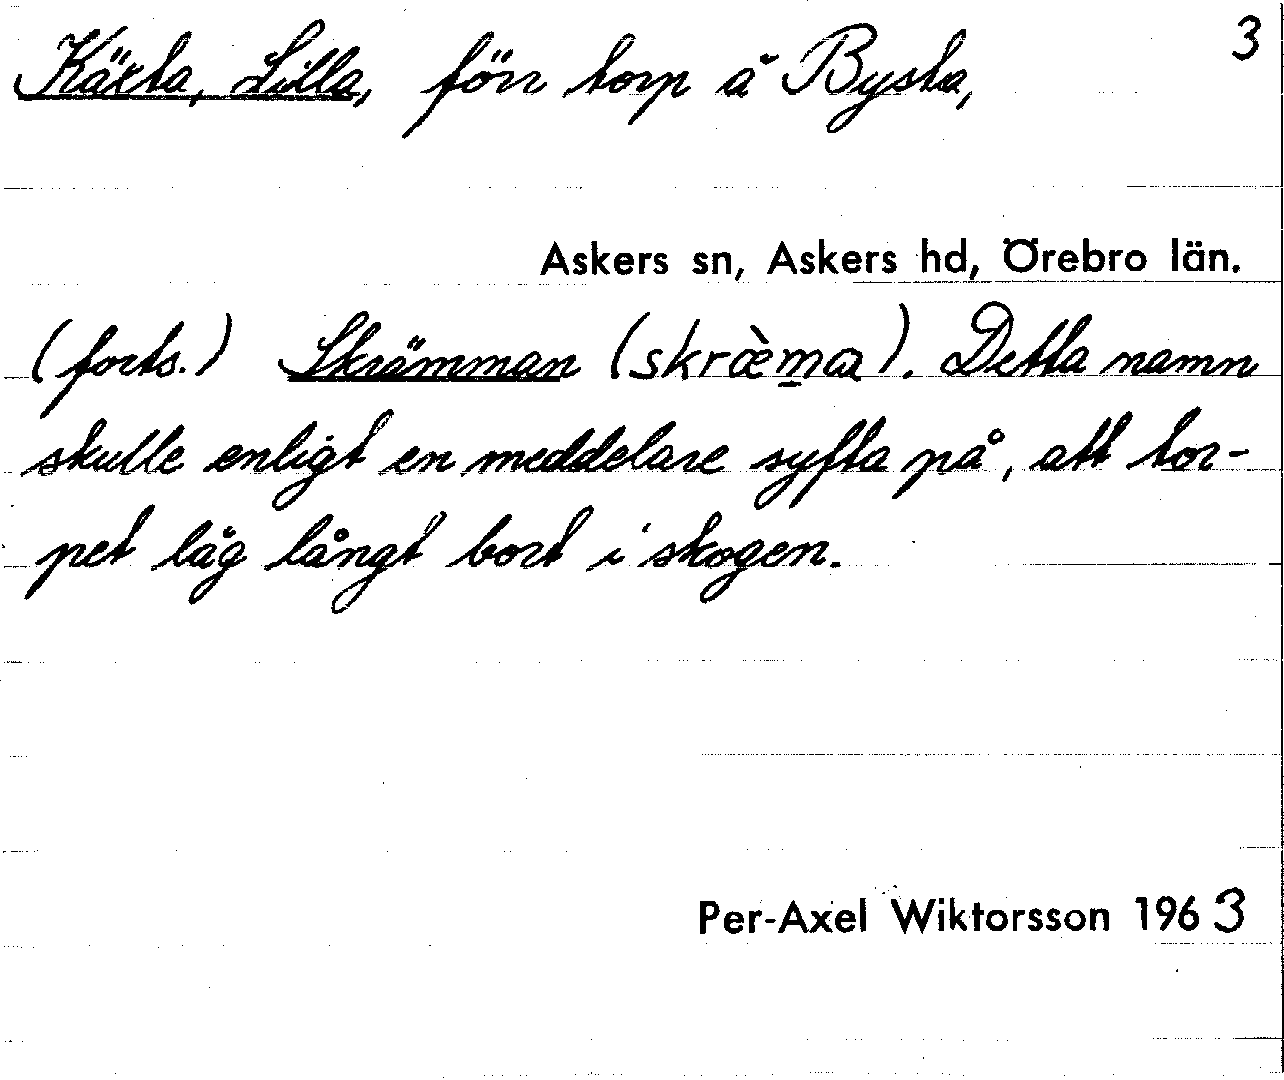 Käxta, Lilla, förr torp å Bysta, 3
Askers sn, Askers hd, Örebro län.
(forts.) Skrämman (skræ̀m̲a). Detta namn
skulle enligt en meddelare syfta på, att tor-
pet låg långt bort i skogen.
Per-Axel Wiktorsson 1963